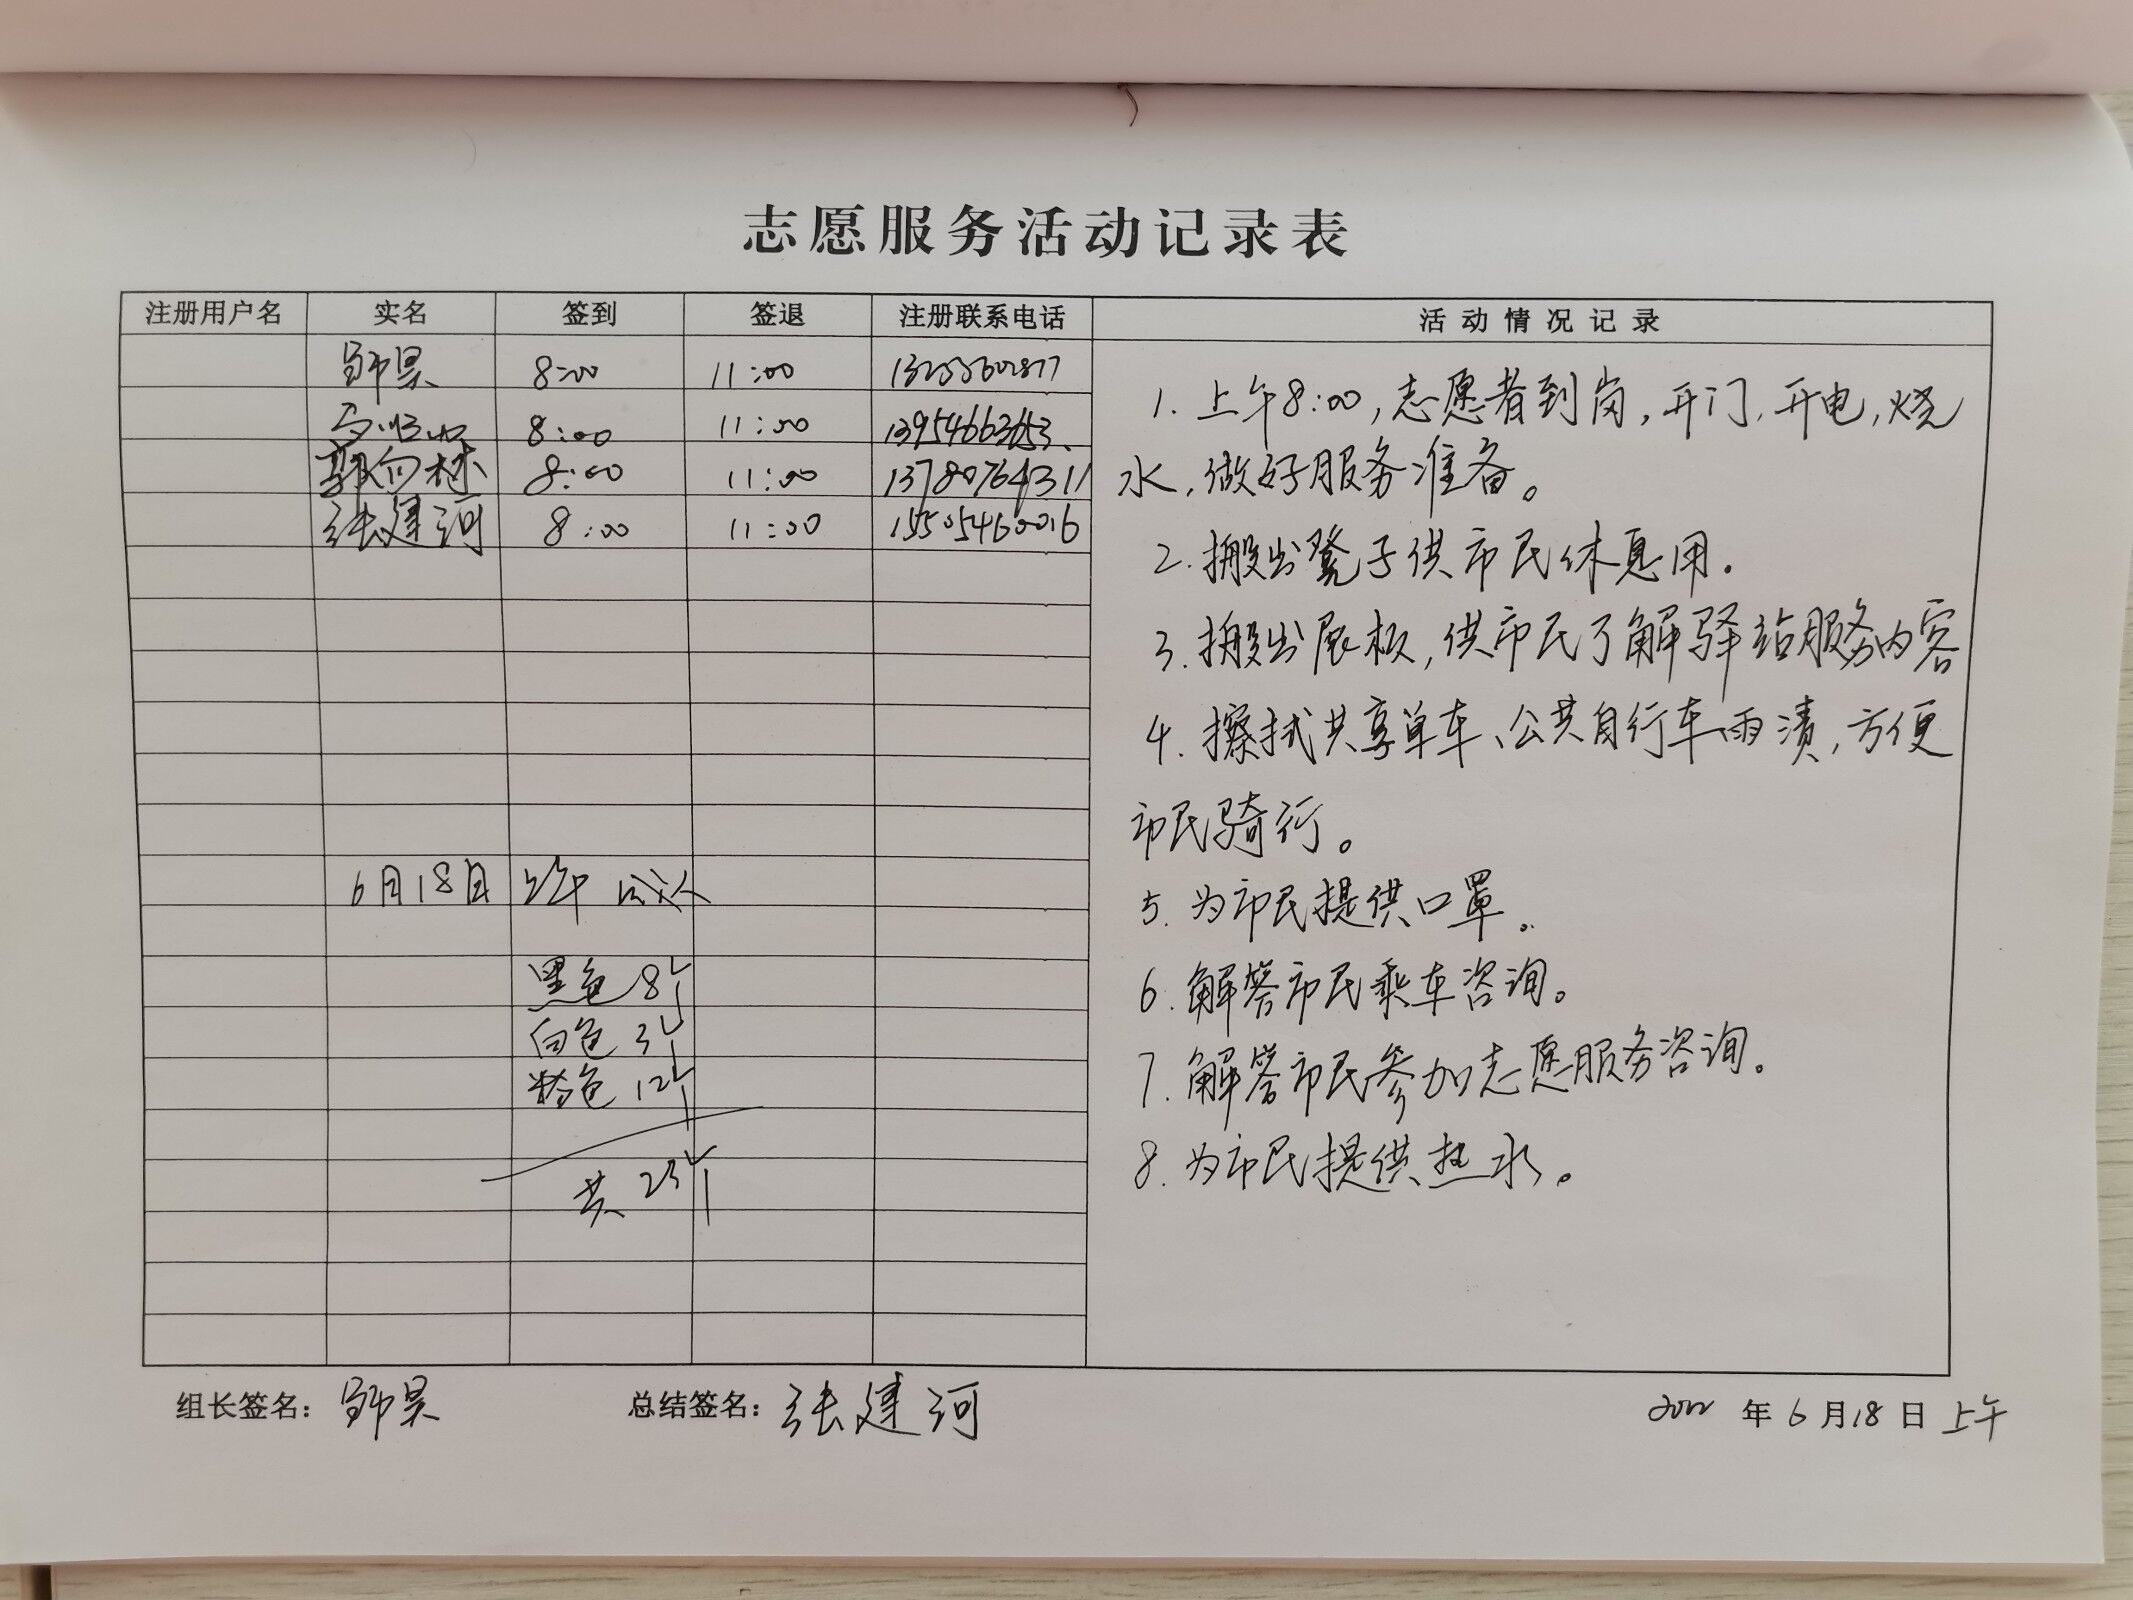 志愿服务活动记录表
注册用户名 实名 签到 签退 注册联系电话 活动情况记录
8:00 11:00
8:00 11:00 13954663653
郭向林 8:00 11:00 13780764311
张建河 8:00 11:00 15505460016
6月18日 上午
黑色 8个
白色 3个
粉色 12个
共 23个
1. 上午8:00,志愿者到岗,开门,开电,烧
水,做好服务准备。
2. 搬出凳子供市民休息用.
3. 搬出展板,供市民了解驿站服务内容
4. 擦拭共享单车、公共自行车雨渍,方便
市民骑行。
5. 为市民提供口罩。
6. 解答市民乘车咨询。
7. 解答市民参加志愿服务咨询。
8. 为市民提供热水。
组长签名: 总结签名: 张建河 2022年6月18日上午